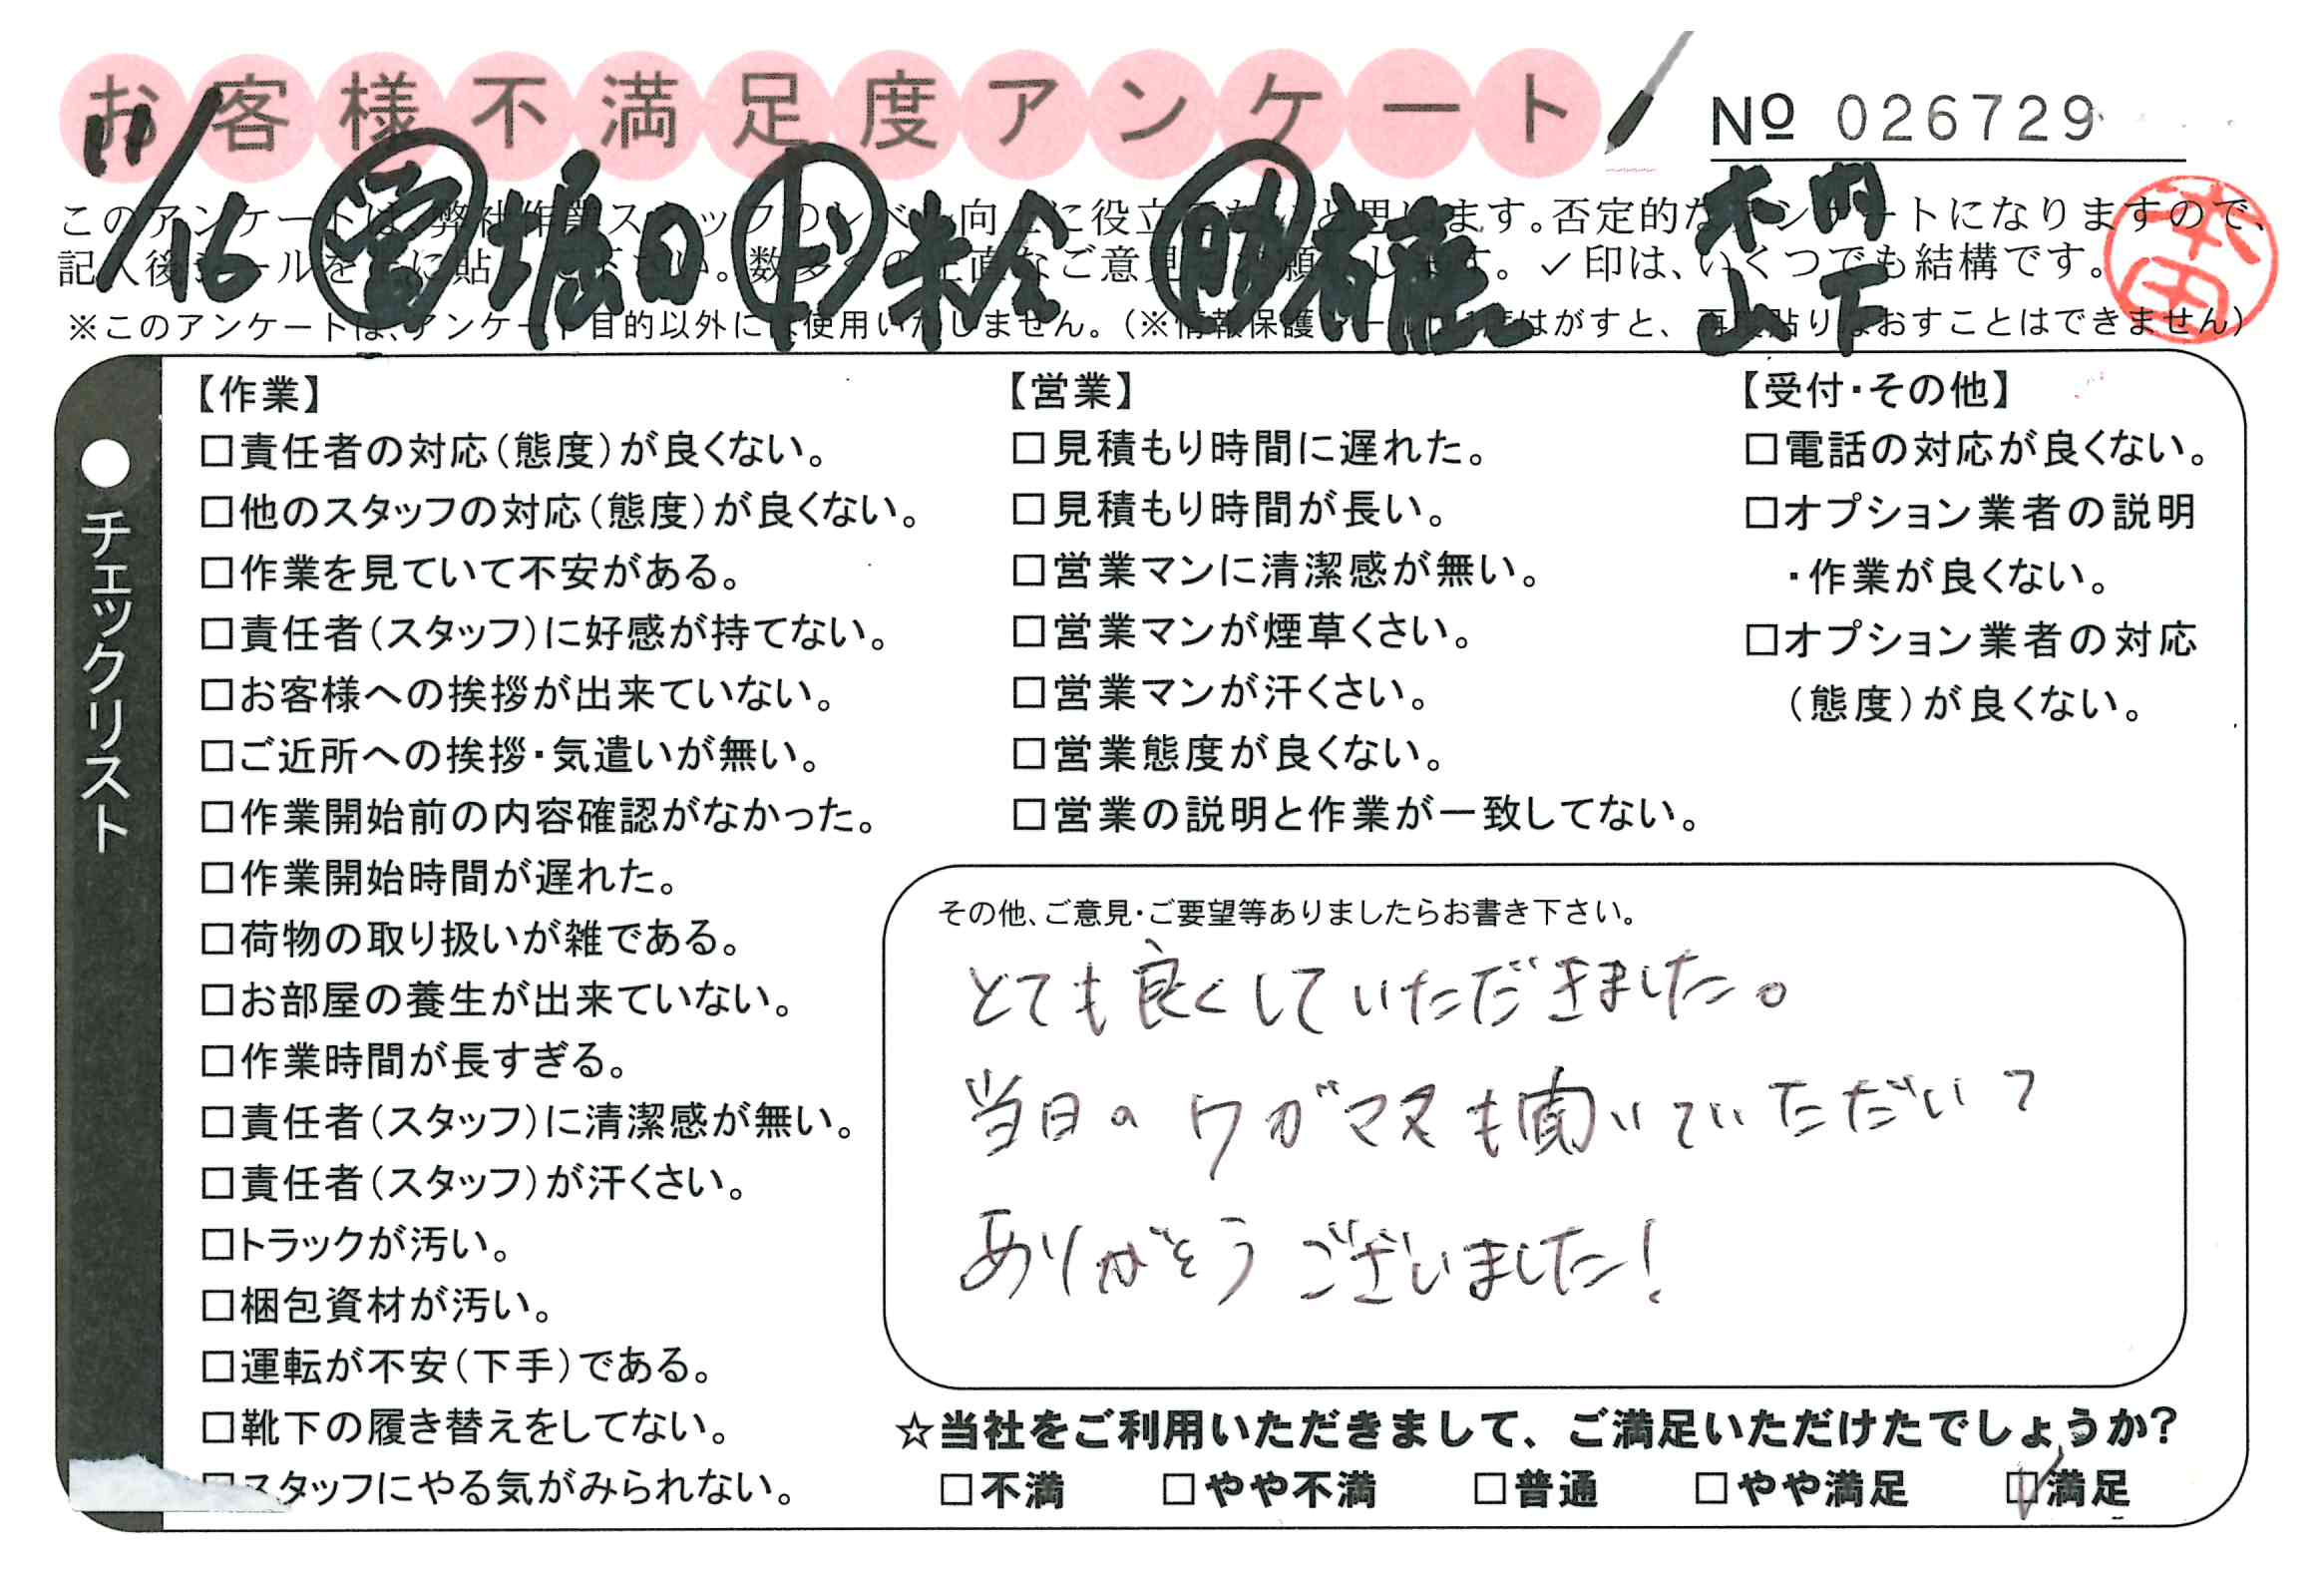 お客様不満足度アンケート
№ 026729
11/16 営 堀口 ト 米倉 助 斎藤 木内 山下
本田
このアンケートは、弊社作業スタッフのレベル向上に役立てたいと思います。否定的なアンケートになりますので、
記入後シールを上に貼って下さい。数多くの正直なご意見お願いします。✓印は、いくつでも結構です。
※このアンケートは、アンケート目的以外には使用いたしません。(※情報保護シールは1度はがすと、再度貼りなおすことはできません)
●チェックリスト
【作業】
□責任者の対応(態度)が良くない。
□他のスタッフの対応(態度)が良くない。
□作業を見ていて不安がある。
□責任者(スタッフ)に好感が持てない。
□お客様への挨拶が出来ていない。
□ご近所への挨拶・気遣いが無い。
□作業開始前の内容確認がなかった。
□作業開始時間が遅れた。
□荷物の取り扱いが雑である。
□お部屋の養生が出来ていない。
□作業時間が長すぎる。
□責任者(スタッフ)に清潔感が無い。
□責任者(スタッフ)が汗くさい。
□トラックが汚い。
□梱包資材が汚い。
□運転が不安(下手)である。
□靴下の履き替えをしてない。
□スタッフにやる気がみられない。
【営業】
□見積もり時間に遅れた。
□見積もり時間が長い。
□営業マンに清潔感が無い。
□営業マンが煙草くさい。
□営業マンが汗くさい。
□営業態度が良くない。
□営業の説明と作業が一致してない。
【受付・その他】
□電話の対応が良くない。
□オプション業者の説明
・作業が良くない。
□オプション業者の対応
(態度)が良くない。
その他、ご意見・ご要望等ありましたらお書き下さい。
とても良くしていただきました。
当日のワガママも聞いていただいて
ありがとうございました!
☆当社をご利用いただきまして、ご満足いただけたでしょうか?
□不満 □やや不満 □普通 □やや満足 ☑満足